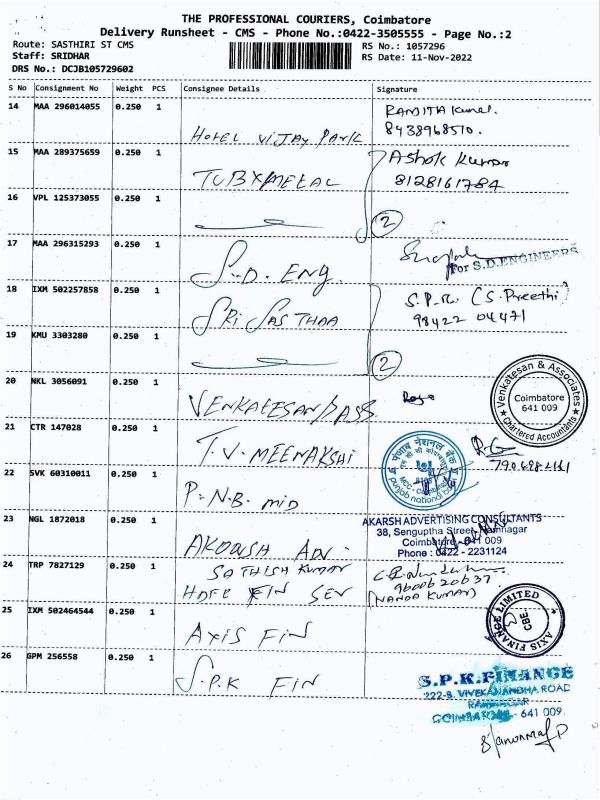 THE PROFESSIONAL COURIERS, Coimbatore
Delivery Runsheet - CMS - Phone No.:0422-3505555 - Page No.:2
Route: SASTHIRI ST CMS
RS No.: 1057296
Staff: SRIDHAR
RS Date: 11-Nov-2022
DRS No.: DCJB105729602
S No Consignment No Weight PCS Consignee Details Signature
14 MAA 296014055 0.250 1
HOTEL VIJAY PARK
8438968510.
15 MAA 289375659 0.250 1
Ashok Kumar
8128161784
16 VPL 125373055 0.250 1
2
17 MAA 296315293 0.250 1
S.D. ENG.
For S.D.ENGINEERS
18 IXM 502257858 0.250 1
SRI SASTHAA
S.P.R. (S.Preethi)
98422 04471
19 KMU 3303280 0.250 1
2
20 NKL 3056091 0.250 1
VENKATESAN/ASS
Venkatesan & Associates
Coimbatore
641 009
Chartered Accountants
21 CTR 147028 0.250 1
T.V. MEENAKSHI
22 SVK 60310011 0.250 1
P.N.B. MID
पंजाब नैशनल बैंक
punjab national bank
23 NGL 1872018 0.250 1
ADV.
AKARSH ADVERTISING CONSULTANTS
38, Senguptha Street, Ramnagar
Coimbatore 641 009
Phone : 0422 - 2231124
24 TRP 7827129 0.250 1
SATHISH KUMAR
FIN SER
9600620637
(NANDA KUMAR)
25 IXM 502464544 0.250 1
AXIS FIN
AXIS FINANCE LIMITED
CBE
26 GPM 256558 0.250 1
S.P.K FIN
S.P.K.FINANCE
222-B, VIVEKANANDHA ROAD
RAMNAGAR
COIMBATORE - 641 009.